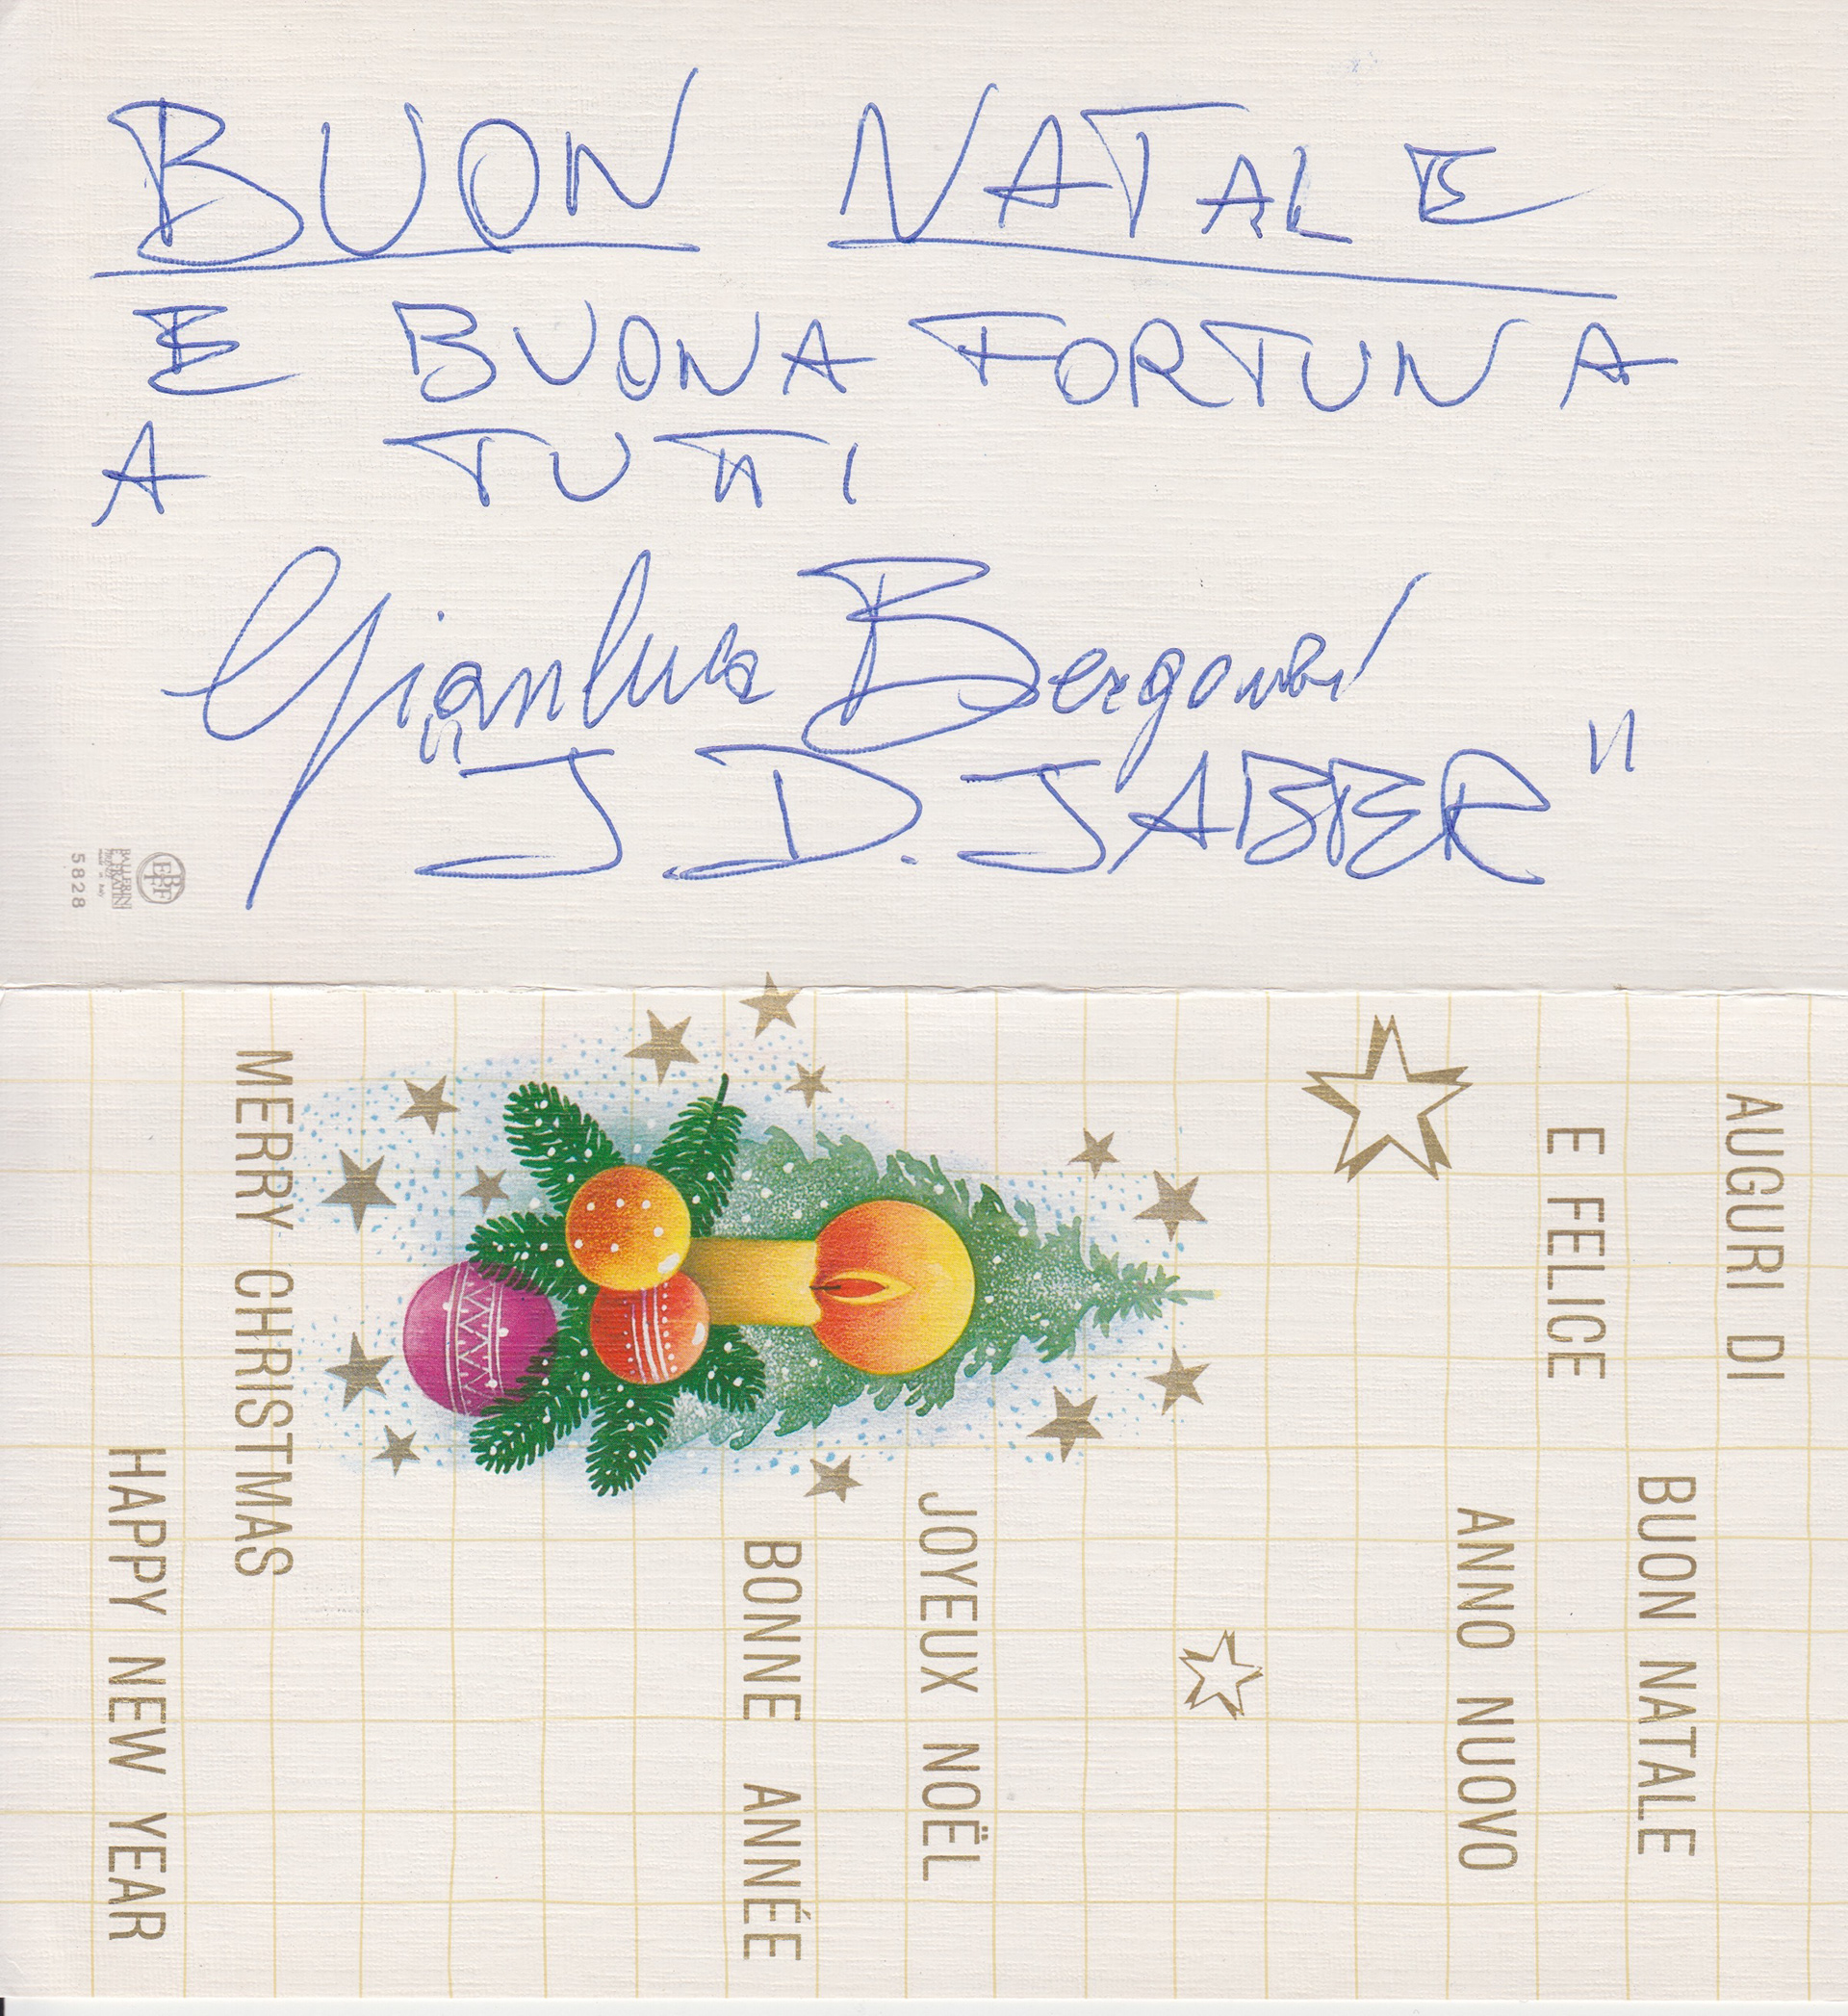 BUON NATALE
E BUONA FORTUNA
A TUTTI
Gianluca Bergonzi
"J.D. JABBER"
EBF
5828
AUGURI DI
BUON NATALE
E FELICE
ANNO NUOVO
JOYEUX NOËL
BONNE ANNÉE
MERRY CHRISTMAS
HAPPY NEW YEAR